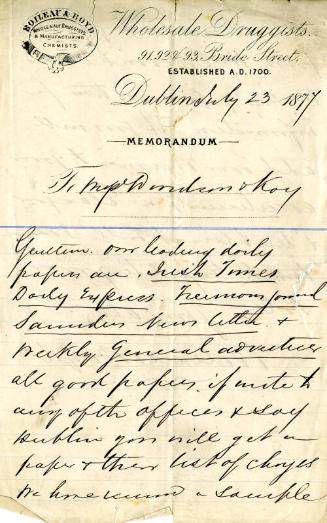 BOILEAU & BOYD
WHOLESALE DRUGGISTS
& MANUFACTURING
CHEMISTS.
Wholesale Druggists.
91.92 & 93. Bride Street.
ESTABLISHED A.D. 1700.
Dublin July 23 1877
MEMORANDUM
To Davidson & Kay
Gentlemen. Our leading daily
papers are. Irish Times
Daily Express. Freemans Journal
Saunders News letter &
Weekly General advertiser
all good papers. if write to
any of the offices & say
Dublin you will get a
paper & their list of charges
We have received a Sample